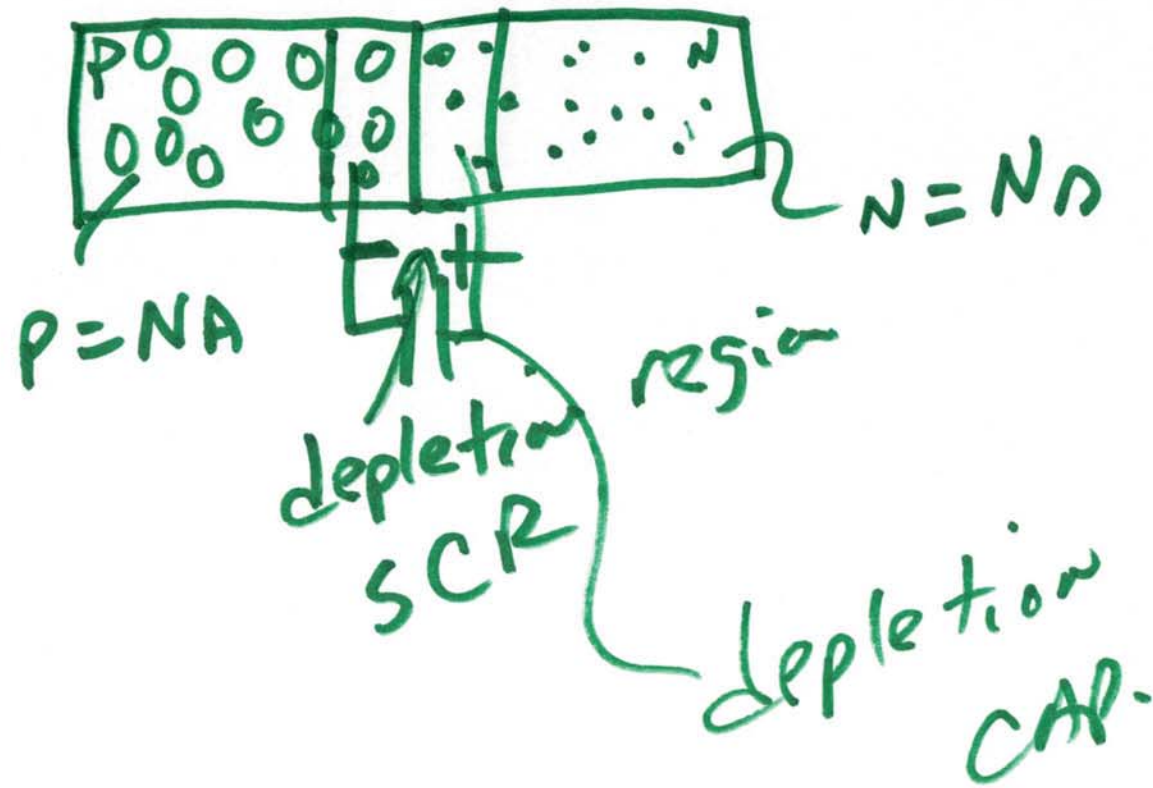 P
N
N = ND
P = NA
- +
depletion region
SCR
depletion
CAP.